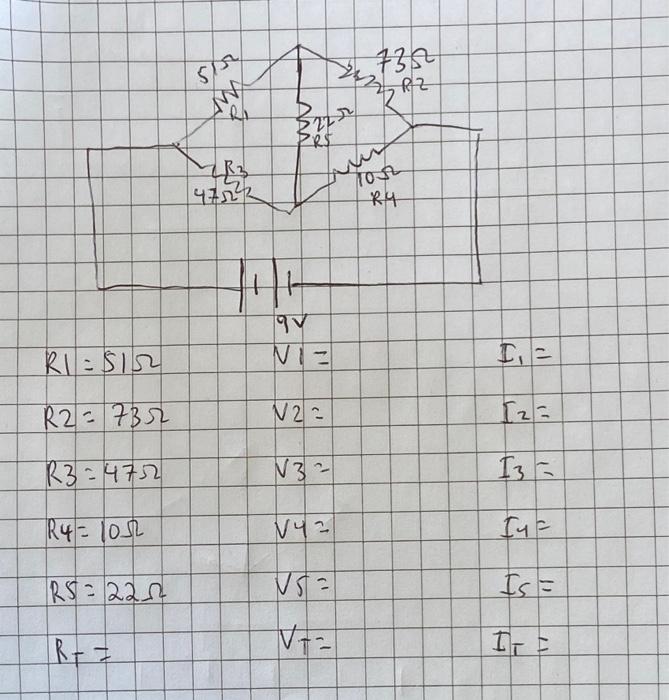 51Ω
73Ω
R2
R1
22Ω
R5
R3
47Ω
10Ω
R4
9V
R1 = 51Ω V1 = I₁ =
R2 = 73Ω V2 = I₂ =
R3 = 47Ω V3 = I₃ =
R4 = 10Ω V4 = I₄ =
R5 = 22Ω V5 = I₅ =
R_T = V_T = I_T =